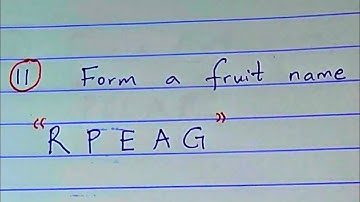 11 Form a fruit name
"R P E A G"